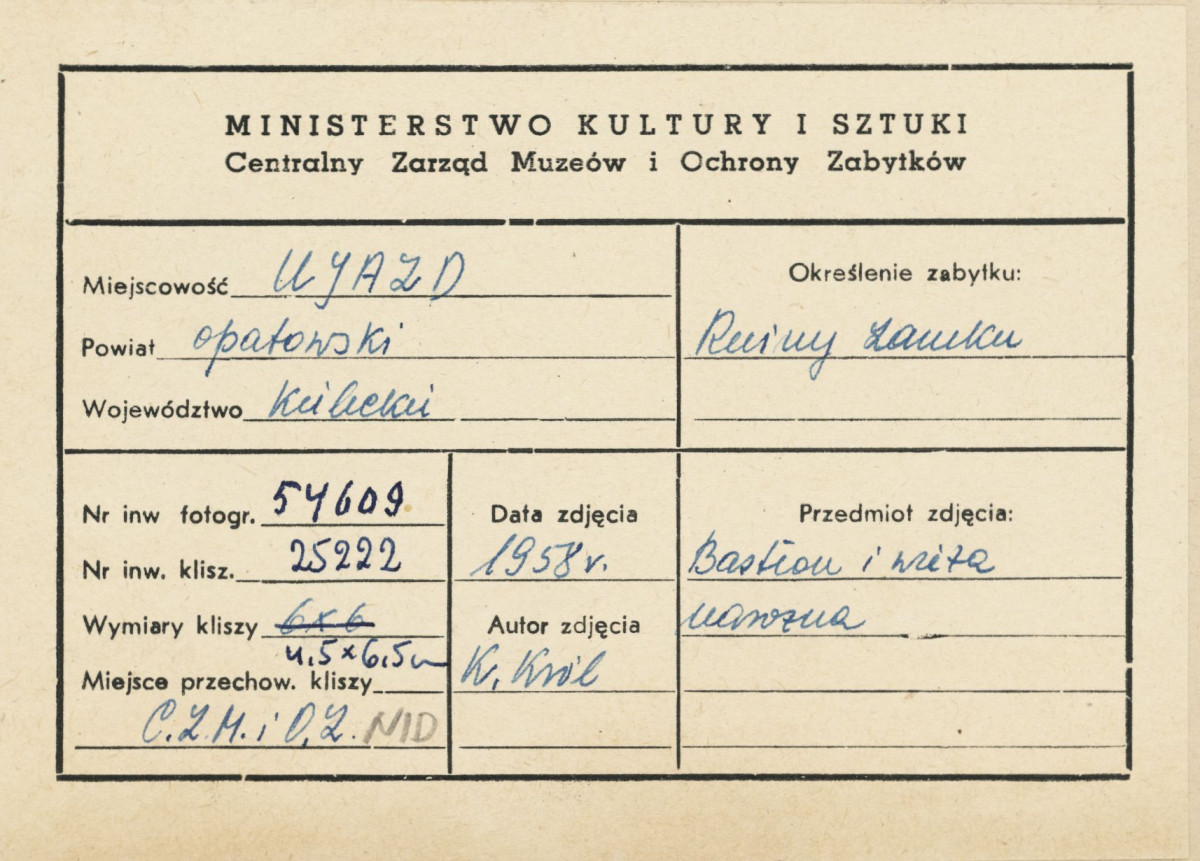 MINISTERSTWO KULTURY I SZTUKI
Centralny Zarząd Muzeów i Ochrony Zabytków
Miejscowość UJAZD
Powiat opatowski
Województwo Kielecki
Określenie zabytku:
Ruiny zamku
Nr inw fotogr. 54609
Nr inw. klisz. 25222
Wymiary kliszy 6x6
4,5x6,5
Miejsce przechow. kliszy
C.Z.M. i O.Z. NID
Data zdjęcia
1958 r.
Autor zdjęcia
K. Król
Przedmiot zdjęcia:
Bastion i wieża
narożna